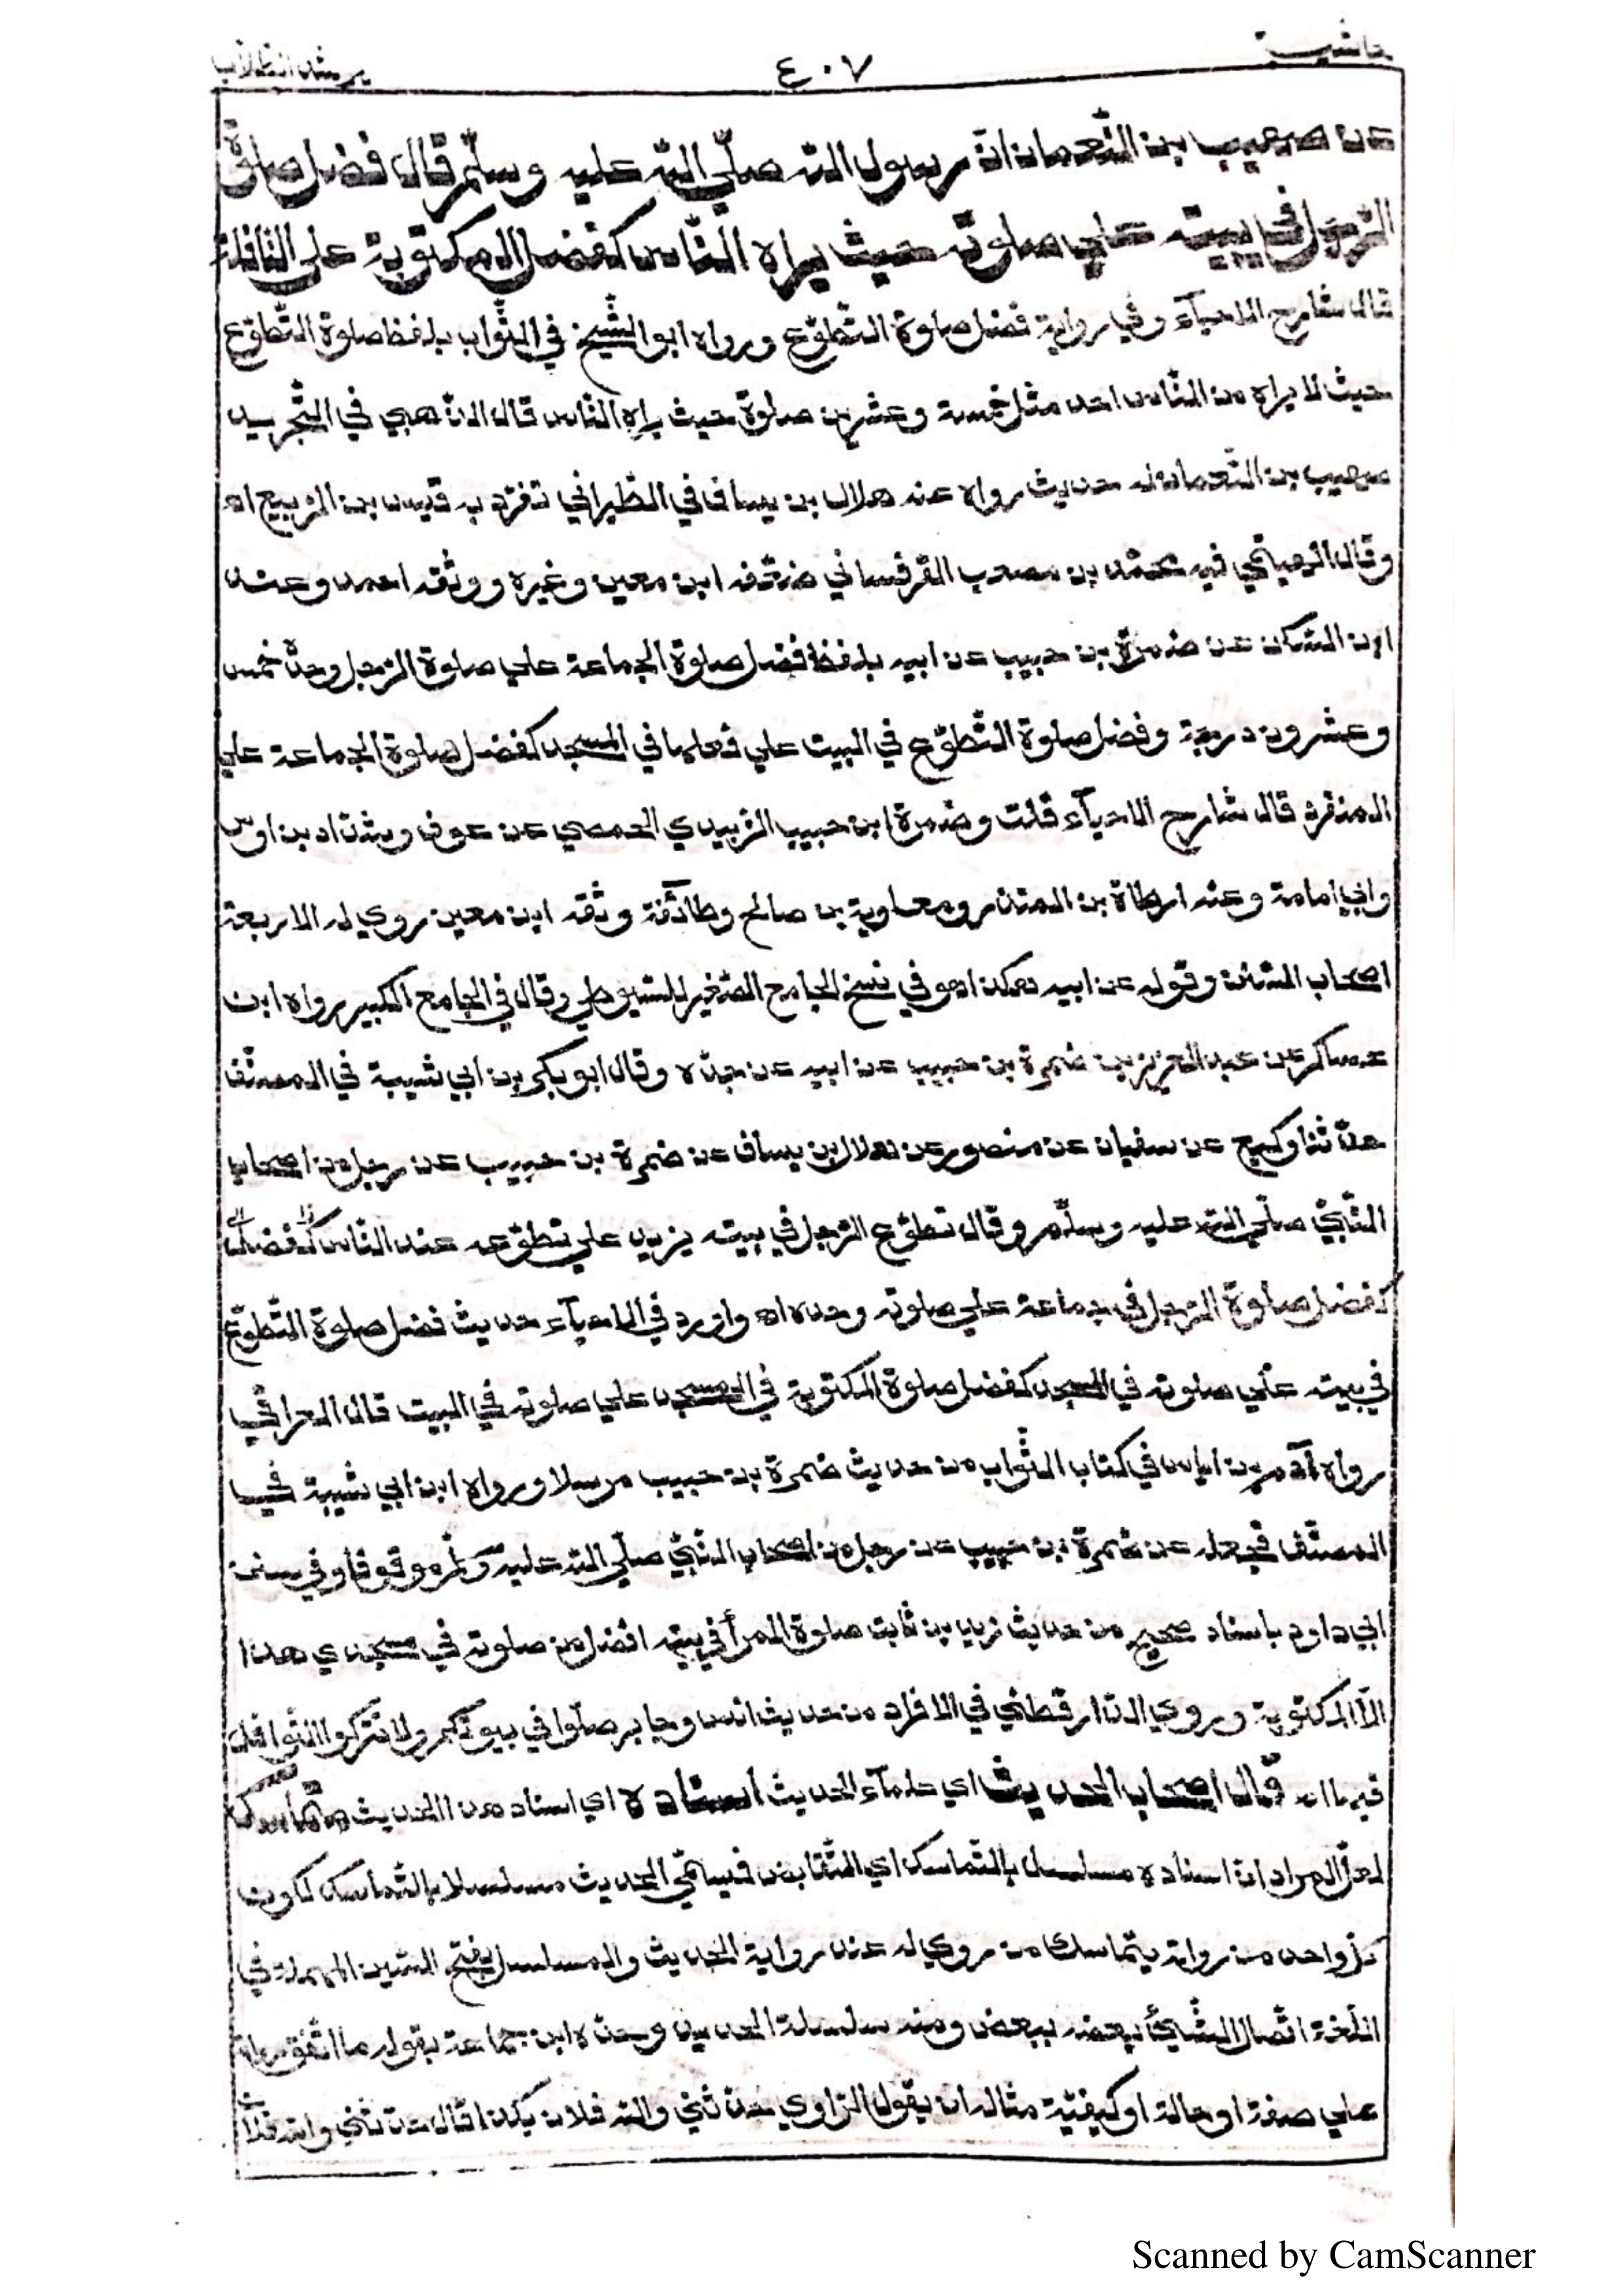 حاشية ٤٠٧ مرشد الطلاب
عن صهيب بن النّعمان انّ رسول الله صلّي الله عليه وسلّم قال فضل صلوة
الرّجل في بيته علي صلوته حيث يراه النّاس كفضل المكتوبة علي النّافلة
قال شارح الاحيآء وفي رواية فضل صلوة التّطوّع ورواه ابو الشّيخ في الثّواب بلفظ صلوة التّطوّع
حيث لا يراه من النّاس احد مثل خمسة وعشرين صلوة حيث يراه النّاس قال الذّهبي في التّجريد
صهيب بن النّعمان له حديث رواه عنه هلال بن يساف في الطّبراني تفرّد به قيس بن الرّبيع اه
وقال الهيثمي فيه محمّد بن مصعب القرقساني ضعّفه ابن معين وغيره ووثّقه احمد وعند
ابن السّكن عن ضمرة بن حبيب عن ابيه بلفظ فضل صلوة الجماعة علي صلوة الرّجل وحدّه خمس
وعشرون درجة وفضل صلوة التّطوّع في البيت علي فعلها في المسجد كفضل صلوة الجماعة علي
المنفرد قال شارح الاحيآء قلت وضمرة ابن حبيب الزّبيدي الحمصي عن عوف وشدّاد بن اوس
وابي امامة وعنه ارطاة بن المنذر ومعاوية بن صالح وطائفة وثّقه ابن معين روي له الاربعة
اصحاب السّنن وقوله عن ابيه هكذا هو في نسخ الجامع الصّغير للسّيوطي وقال في الجامع الكبير رواه ابن
عساكر عن عبد العزيز بن ضمرة بن حبيب عن ابيه عن جدّه وقال ابو بكر بن ابي شيبة في المصنّف
حدّثنا وكيع عن سفيان عن منصور عن هلال بن يساف عن ضمرة بن حبيب عن رجل من اصحاب
النّبيّ صلّي الله عليه وسلّم وقال تطوّع الرّجل في بيته يزيد علي تطوّعه عند النّاس كفضل
كفضل صلوة الرّجل في جماعة علي صلوته وحده اه واورد في الاحيآء حديث فضل صلوة التّطوّع
في بيته علي صلوته في المسجد كفضل صلوة المكتوبة في المسجد علي صلوته في البيت قال العراقي
رواه آدم بن اياس في كتاب الثّواب من حديث ضمرة بن حبيب مرسلا ورواه ابن ابي شيبة في
المصنّف فجعله عن ضمرة بن حبيب عن رجل من اصحاب النّبيّ صلّي الله عليه وسلّم موقوفا وفي سنن
ابي داود باسناد صحيح من حديث زيد بن ثابت صلوة المرأ في بيته افضل من صلوته في مسجدي هذا
الّا المكتوبة وروي الدّارقطني في الافراد من حديث انس وجابر صلّوا في بيوتكم ولا تتركوا النّوافل
فيها اه قال اصحاب الحديث اي علمآء الحديث اسناده اي اسناد هذا الحديث متماسك
لعلّ المراد انّ اسناده مسلسل بالتّماسك اي التّقابض فيسمّي الحديث مسلسلا بالتّماسك لكون
كلّ واحد من رواته يتماسك من روي له عند رواية الحديث والمسلسل بفتح السّين المهملة في
اللّغة اتّصال الشّيئ بعضه ببعض ومنه سلسلة الحديد وحدّه ابن جماعة بقوله ما اتّفق رواته
علي صفة او حالة او كيفيّة مثاله ان يقول الرّاوي حدّثني والله فلان بكذا قال حدّثني والله فلان
Scanned by CamScanner